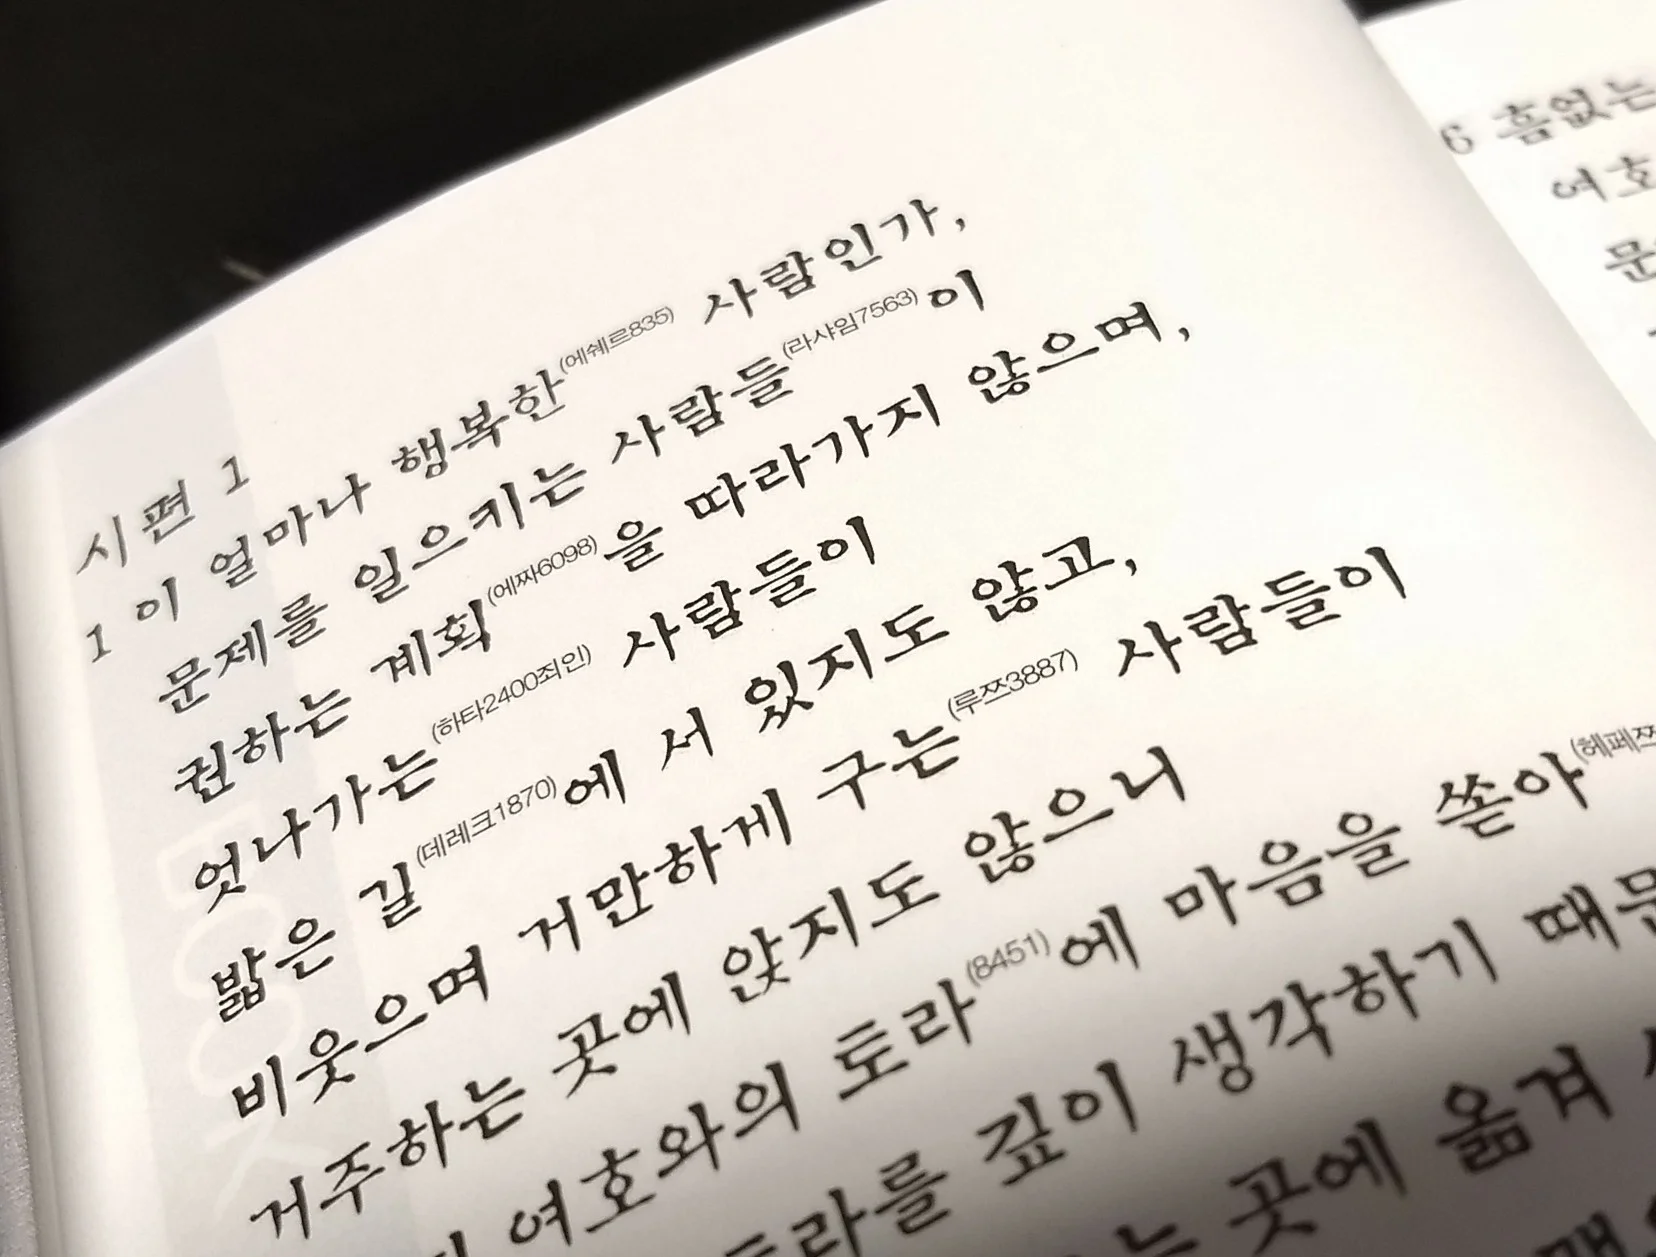 시편 1
1 이 얼마나 행복한(에쉐르835) 사람인가,
문제를 일으키는 사람들(라샤임7563)이
권하는 계획(에짜6098)을 따라가지 않으며,
엇나가는(하타2400죄인) 사람들이
밟은 길(데레크1870)에 서 있지도 않고,
비웃으며 거만하게 구는(루쯔3887) 사람들이
거주하는 곳에 앉지도 않으니
여호와의 토라(8451)에 마음을 쏟아(헤페쯔
토라를 깊이 생각하기 때문
곳에 옮겨
6 흠없는
여호